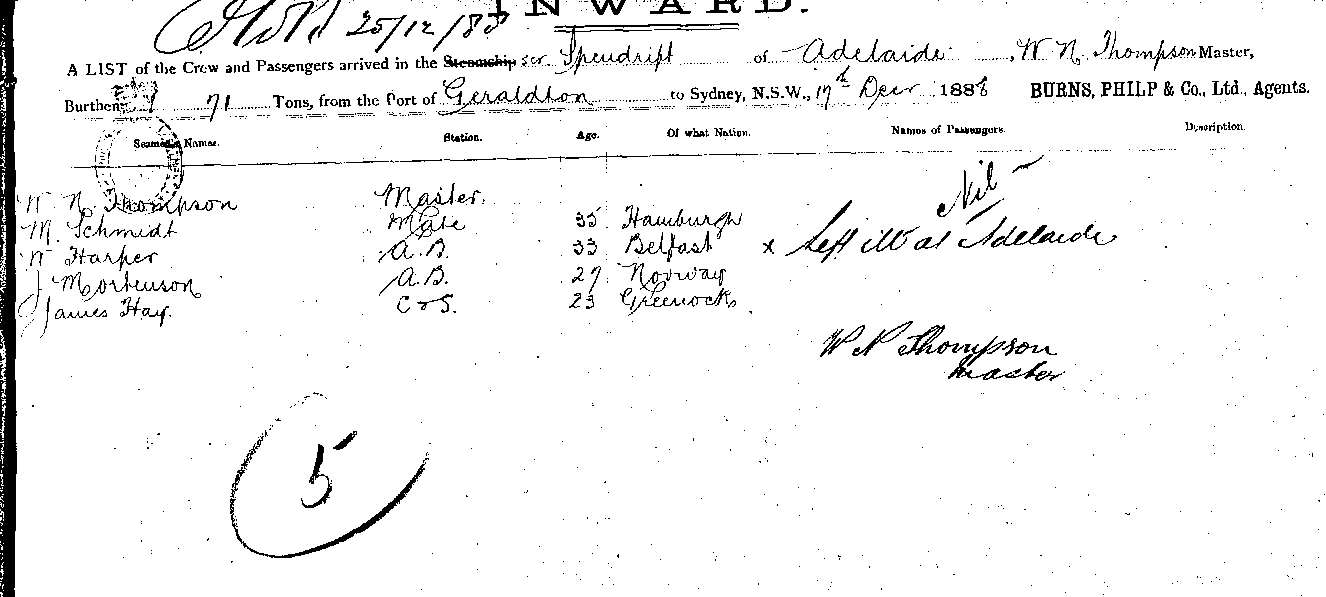 INWARD.
25/12/88
A LIST of the Crew and Passengers arrived in the Steamship scr. Spendrift of Adelaide, W N. Thompson Master,
Burthen 71 Tons, from the Port of Geraldton to Sydney, N.S.W., 17th Decr 1888 BURNS, PHILP & Co., Ltd., Agents.
Seamen's Names. Station. Age. Of what Nation. Names of Passengers. Description.
Nil -
W N. Thompson Master.
M. Schmidt Mate 35 Hamburgh
W Harper A.B. 33 Belfast x Left ill at Adelaide
J Mortenson A.B. 27 Norway
James Hay. C & S. 23 Greenock
W N Thompson
Master
5